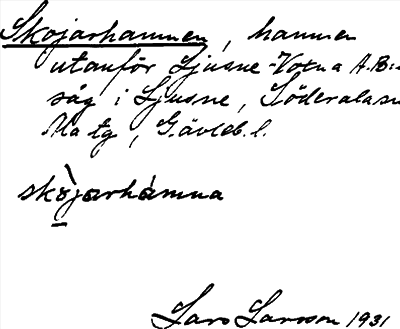 Skojarhamnen, hamnen
utanför Ljusne-Voxna A.B:s
såg i Ljusne, Söderala sn
Ma tg, Gävleb. l.
skòjarhámna
Lars Larsson 1931